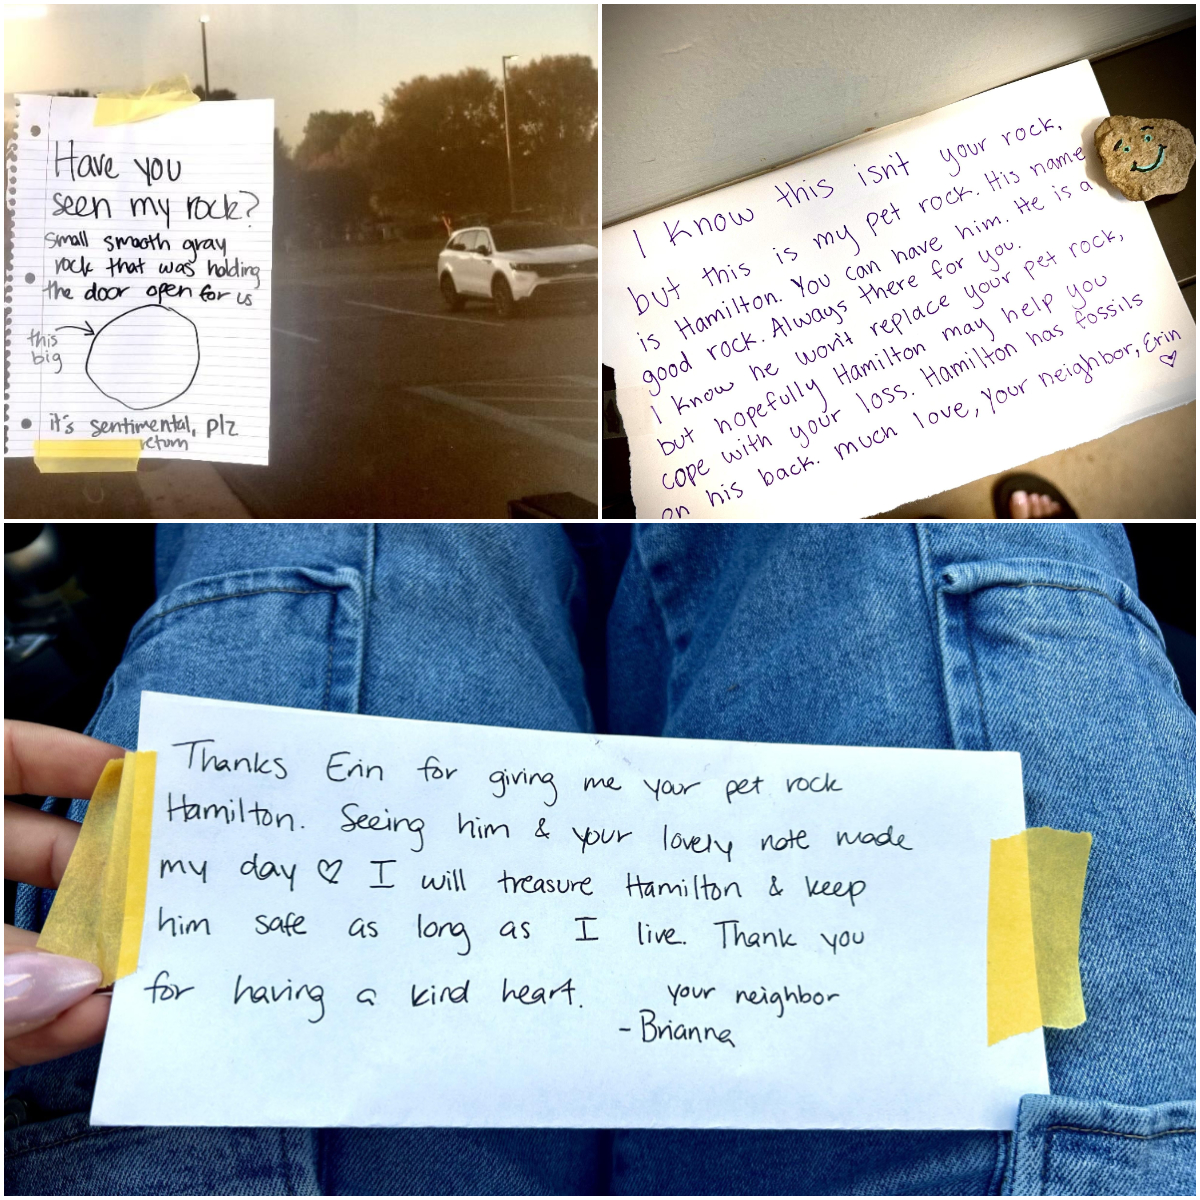 Have you
seen my rock?
small smooth gray
rock that was holding
the door open for us
this
big
it's sentimental, plz
return
I know this isn't your rock,
but this is my pet rock. His name
is Hamilton. You can have him. He is a
good rock. Always there for you.
I know he won't replace your pet rock,
but hopefully Hamilton may help you
cope with your loss. Hamilton has fossils
on his back. Much love, your neighbor, Erin
♡
Thanks Erin for giving me your pet rock
Hamilton. Seeing him & your lovely note made
my day ♡ I will treasure Hamilton & keep
him safe as long as I live. Thank you
for having a kind heart. your neighbor
- Brianna